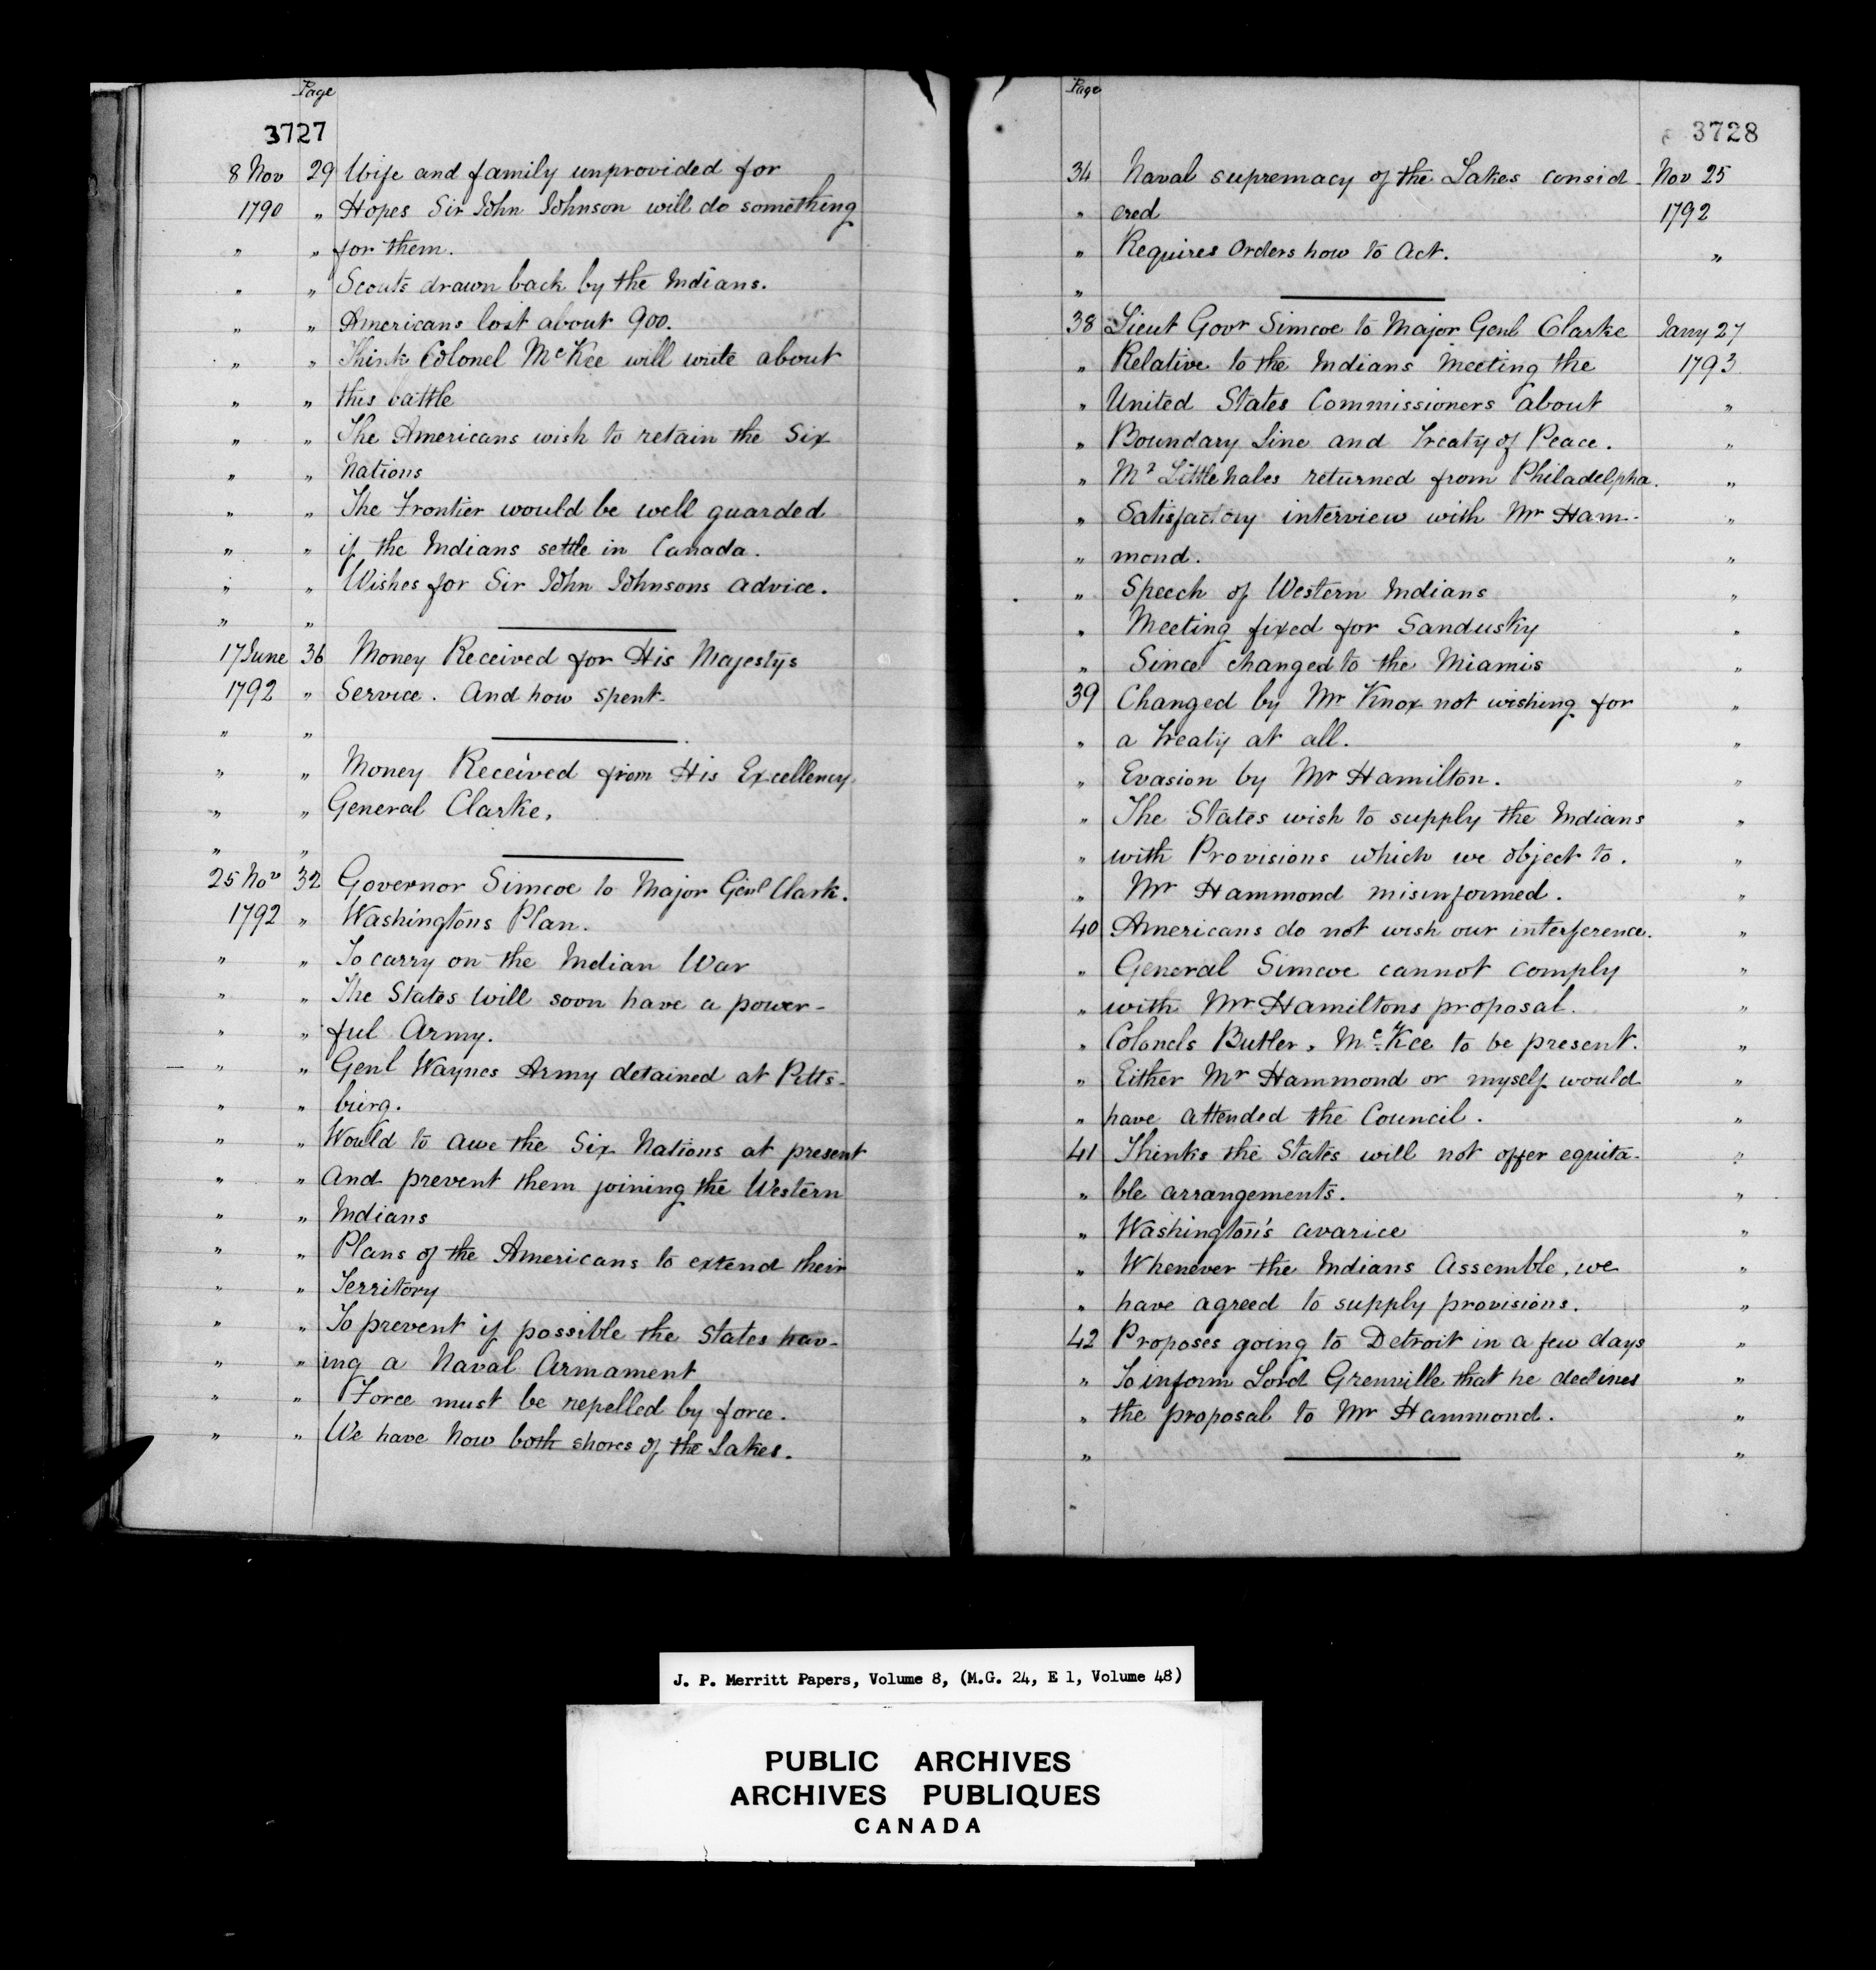 Page
3727
8 Nov 29 Wife and family unprovided for
1790 " Hopes Sir John Johnson will do something
" " for them.
" " Scouts drawn back by the Indians.
" " Americans lost about 900.
" " Think Colonel McKee will write about
" " this battle
" " The Americans wish to retain the Six
" " Nations
" " The Frontier would be well guarded
" " if the Indians settle in Canada.
" " Wishes for Sir John Johnsons advice.
" "
17 June 36 Money Received for His Majestys
1792 " Service. And how spent-
" "
" " Money Received from His Excellency
" " General Clarke.
" "
25 Nov 32 Governor Simcoe to Major Genl Clark.
1792 " Washingtons Plan.
" " To carry on the Indian War
" " The States will soon have a power-
" " ful Army.
" " Genl Waynes Army detained at Pitts-
" " burg.
" " Would to awe the Six Nations at present
" " And prevent them joining the Western
" " Indians
" " Plans of the Americans to extend their
" " Territory
" " To prevent if possible the States hav-
" " ing a Naval Armament
" " Force must be repelled by force.
" " We have now both shores of the Lakes.
Page
3728
34 Naval supremacy of the Lakes consid- Nov 25
" ered 1792
" Requires Orders how to Act. "
"
38 Lieut Govr Simcoe to Major Genl Clarke Jany 27
" Relative to the Indians Meeting the 1793
" United States Commissioners about "
" Boundary Line and Treaty of Peace. "
" Mr Littlehales returned from Philadelpha. "
" Satisfactory interview with Mr Ham- "
" mond. "
" Speech of Western Indians "
" Meeting fixed for Sandusky "
" Since changed to the Miamis "
39 Changed by Mr Knox not wishing for "
" a Treaty at all. "
" Evasion by Mr Hamilton. "
" The States wish to supply the Indians "
" with Provisions which we object to. "
" Mr Hammond misinformed. "
40 Americans do not wish our interference. "
" General Simcoe cannot comply "
" with Mr Hamiltons proposal. "
" Colonels Butler, McKee to be present. "
" Either Mr Hammond or myself would "
" have attended the Council. "
41 Thinks the States will not offer equita- "
" ble arrangements. "
" Washington's avarice "
" Whenever the Indians Assemble, we "
" have agreed to supply provisions. "
42 Proposes going to Detroit in a few days "
" To inform Lord Grenville that he declines "
" the proposal to Mr Hammond. "
" "
"
J. P. Merritt Papers, Volume 8, (M.G. 24, E 1, Volume 48)
PUBLIC ARCHIVES
ARCHIVES PUBLIQUES
CANADA